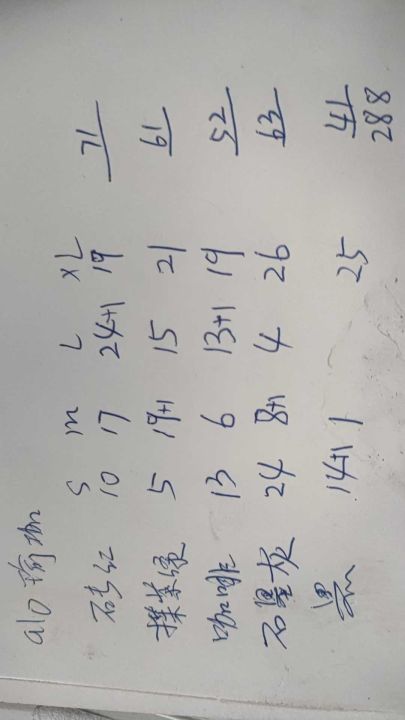 alo 瑜珈
S m L XL
红 10 17 24+1 19 71
抹茶绿 5 19+1 15 21 61
咖啡 13 6 13+1 19 52
石墨灰 24 8+1 4 26 63
黑 14+1 1 25 41
288